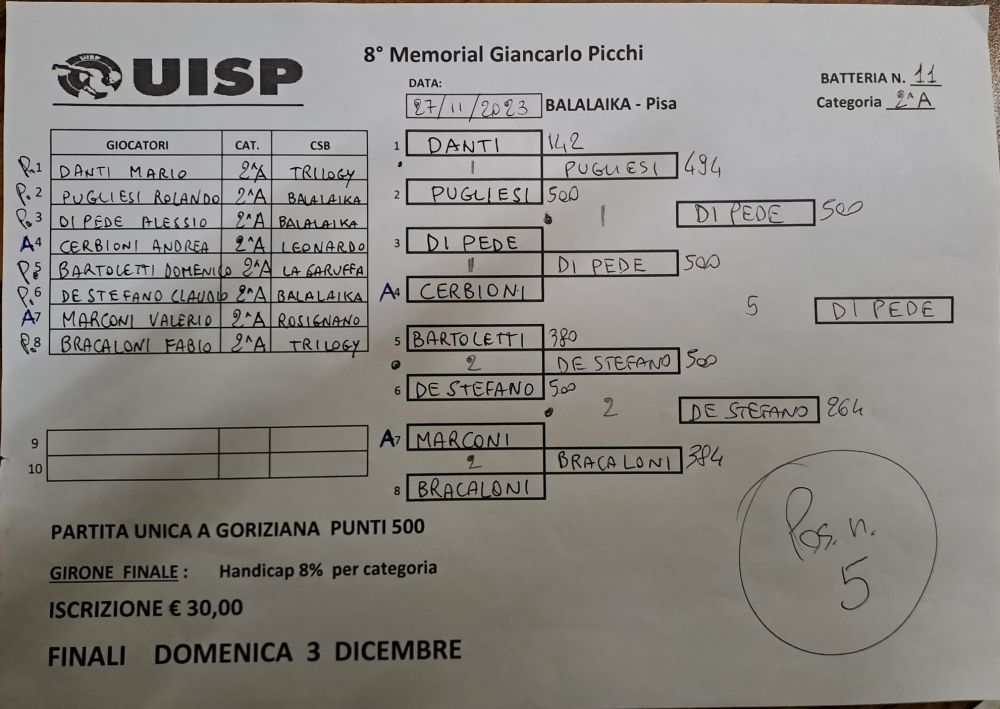 UISP
8° Memorial Giancarlo Picchi
DATA:
27/11/2023 BALALAIKA - Pisa
BATTERIA N. 11
Categoria 2^A
GIOCATORI CAT. CSB
P.1 DANTI MARIO 2^A TRILOGY
P.2 PUGLIESI ROLANDO 2^A BALALAIKA
P.3 DI PEDE ALESSIO 2^A BALALAIKA
A4 CERBIONI ANDREA 2^A LEONARDO
P.5 BARTOLETTI DOMENICO 2^A LA GARUFFA
P.6 DE STEFANO CLAUDIO 2^A BALALAIKA
A7 MARCONI VALERIO 2^A ROSIGNANO
P.8 BRACALONI FABIO 2^A TRILOGY
9
10
1 DANTI 142
1 PUGLIESI 494
2 PUGLIESI 500
1 DI PEDE 500
3 DI PEDE
1 DI PEDE 500
A4 CERBIONI
5 DI PEDE
5 BARTOLETTI 380
2 DE STEFANO 500
6 DE STEFANO 500
2 DE STEFANO 264
A7 MARCONI
2 BRACALONI 384
8 BRACALONI
PARTITA UNICA A GORIZIANA PUNTI 500
GIRONE FINALE : Handicap 8% per categoria
ISCRIZIONE € 30,00
FINALI DOMENICA 3 DICEMBRE
Pos. n.
5